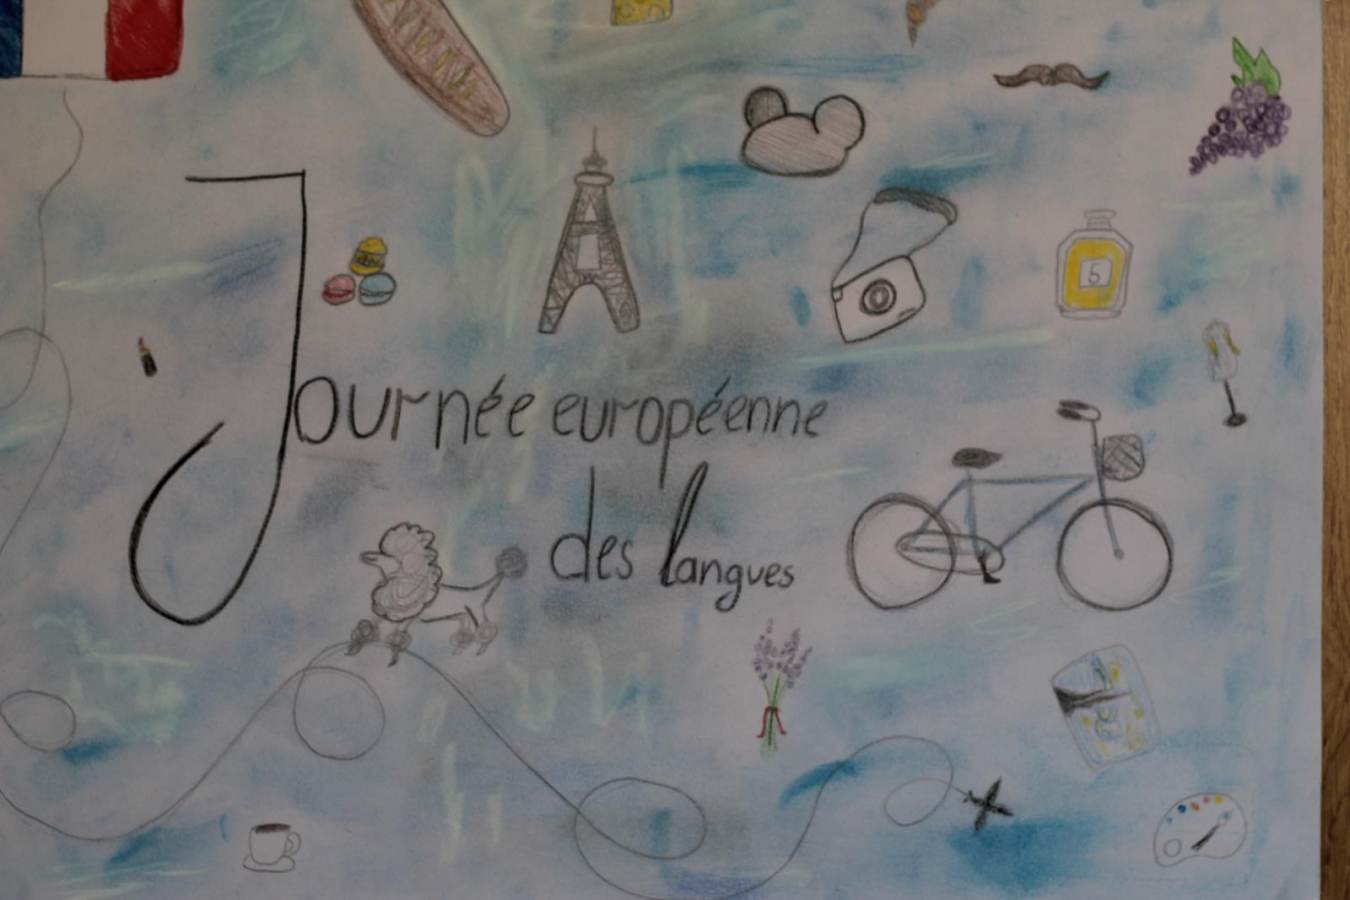 Journée européenne
des langues
5